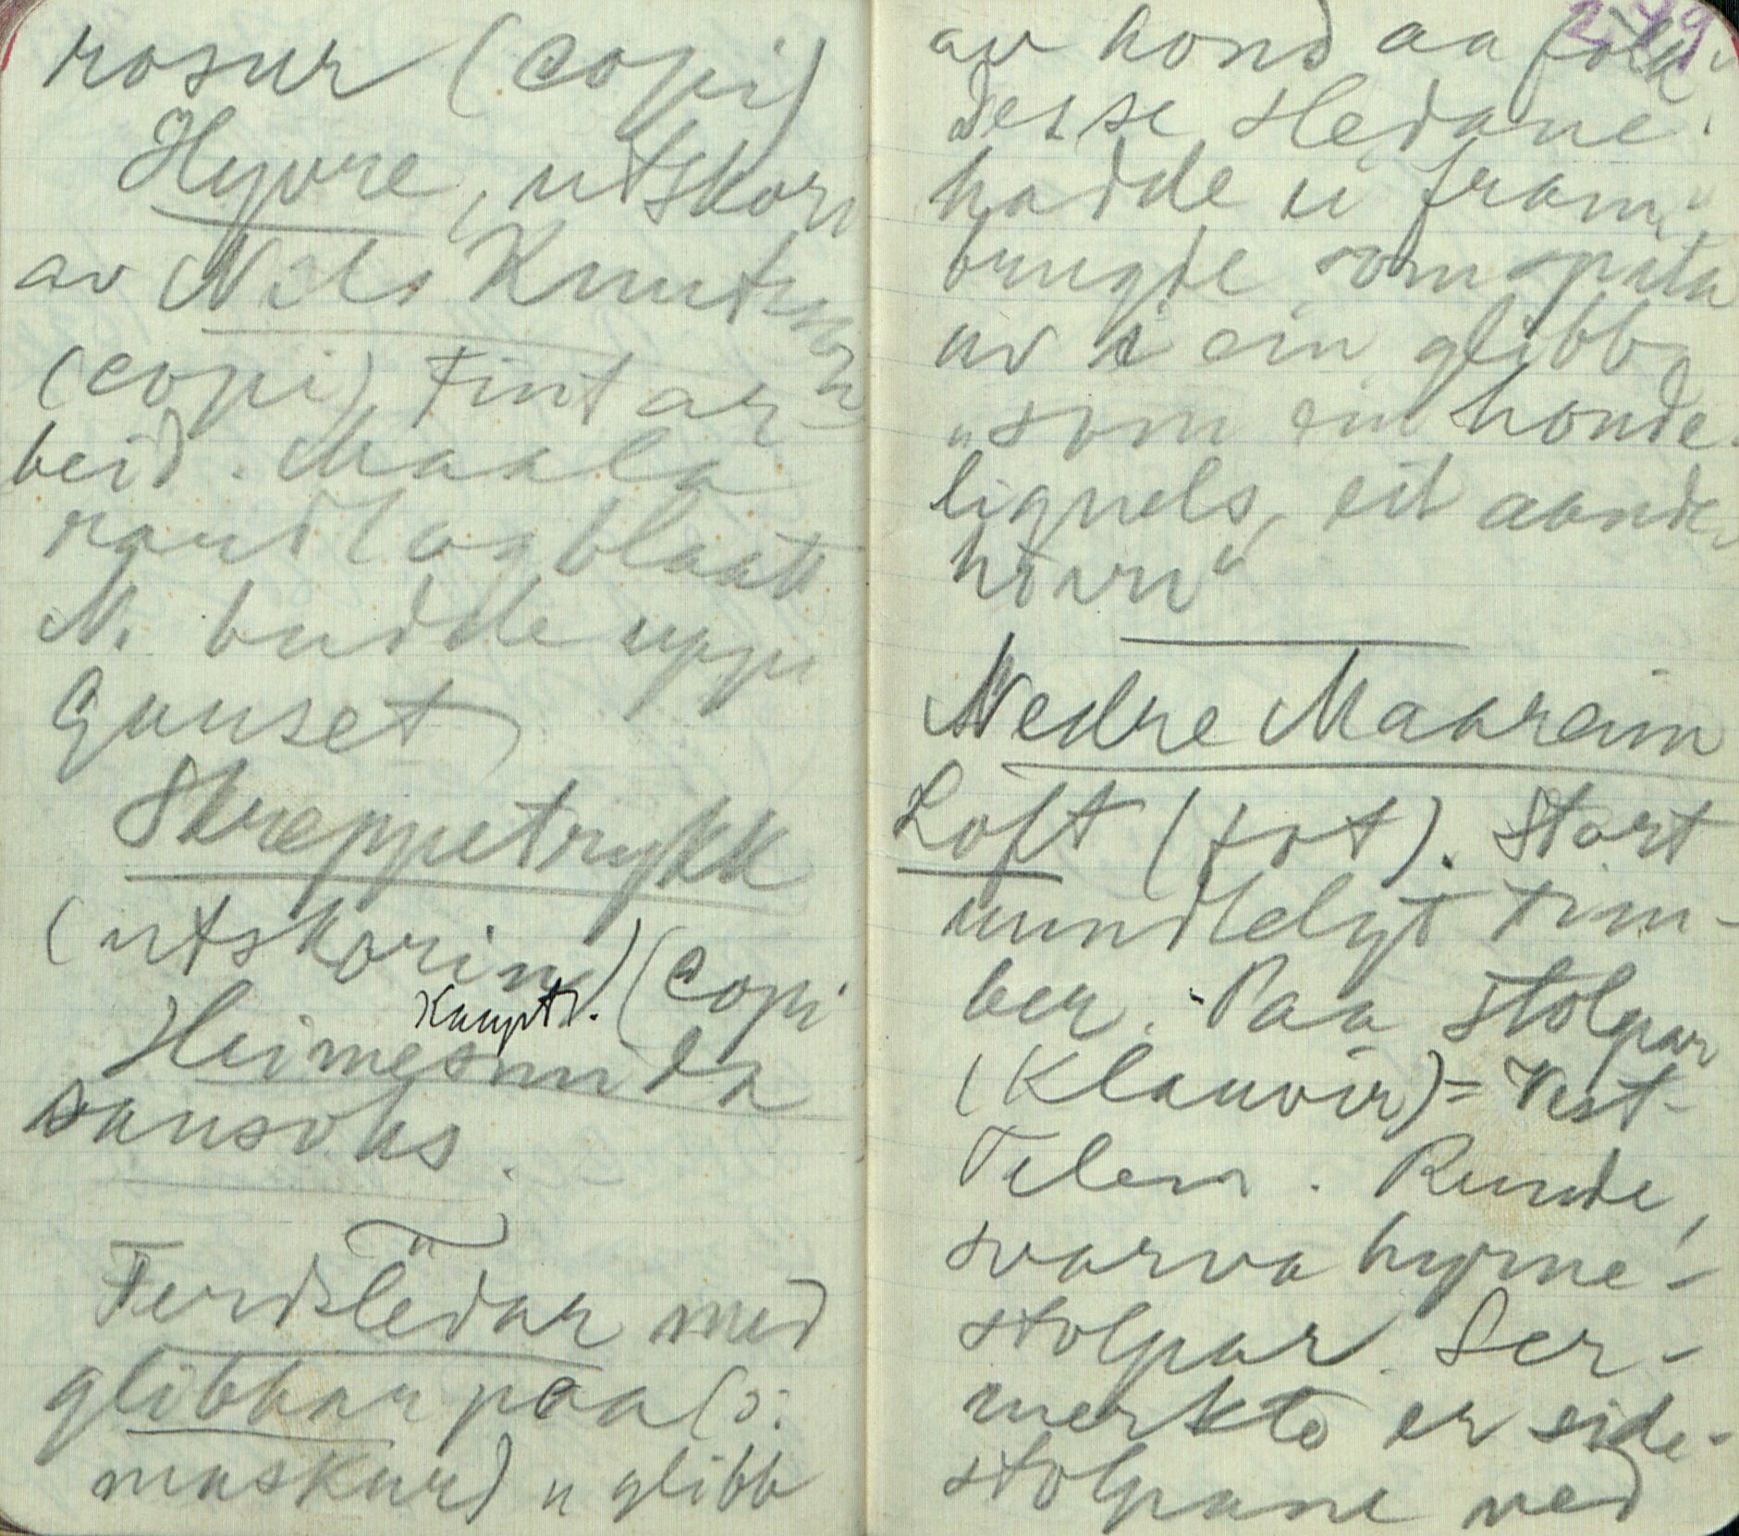 rosur (copi)
Hyvre, utskori
av Nils Knutsen
(copi) Fint ar-
beid. Maala
raudt og blaatt
N. budde uppi
Gauset
Skreppetrykk
(utskorin) (copi
Kaupt.
Heimesmida
sausoks.
Ferdsledar med
glibbar paa (o:
maskur) "glibb
av hond aa fota"
Desse sledane
hadde ei fram-
bungde som spita
ut i ein glibb
"som ein honde-
lignels, eit aande-
hovu"
249
Nedre Maareim
Loft (fot). Stort
uundtelgt tim-
ber. Paa stolpar
(Klauvir) = Vest-
Telem. Runde,
svarva hyrne-
stolpar. Ser-
merkte er side-
stolpane ved